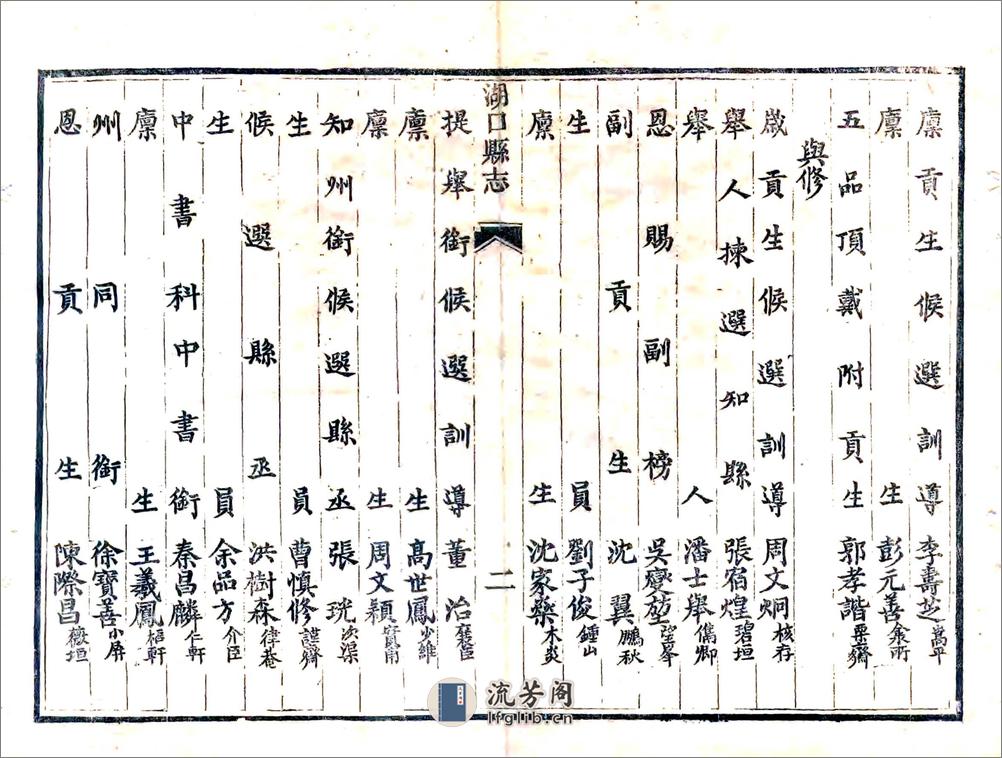 廪貢生候選訓導李壽芝嵩平
廪生彭元善
五品頂戴附貢生郭孝諧栗齋
與修
歲貢生候選訓導周文炯核存
舉人揀選知縣張宿煌碧垣
舉人潘士舉儁卿
恩賜副榜吳燮堃望峯
副貢生沈翼鵬秋
生員劉子俊鍾山
廪生沈家燊木炎
湖口縣志
二
提舉銜候選訓導董治襄臣
廪生高世鳳少維
廪生周文穎寶甫
知州銜候選縣丞張珖次渠
生員曹慎修謹齋
候選縣丞洪樹森律菴
生員余品方介臣
中書科中書銜秦昌麟仁軒
廪生王羲鳳梧軒
州同銜徐寶善小屏
恩貢生陳際昌薇垣
流芳阁
lfglib.cn